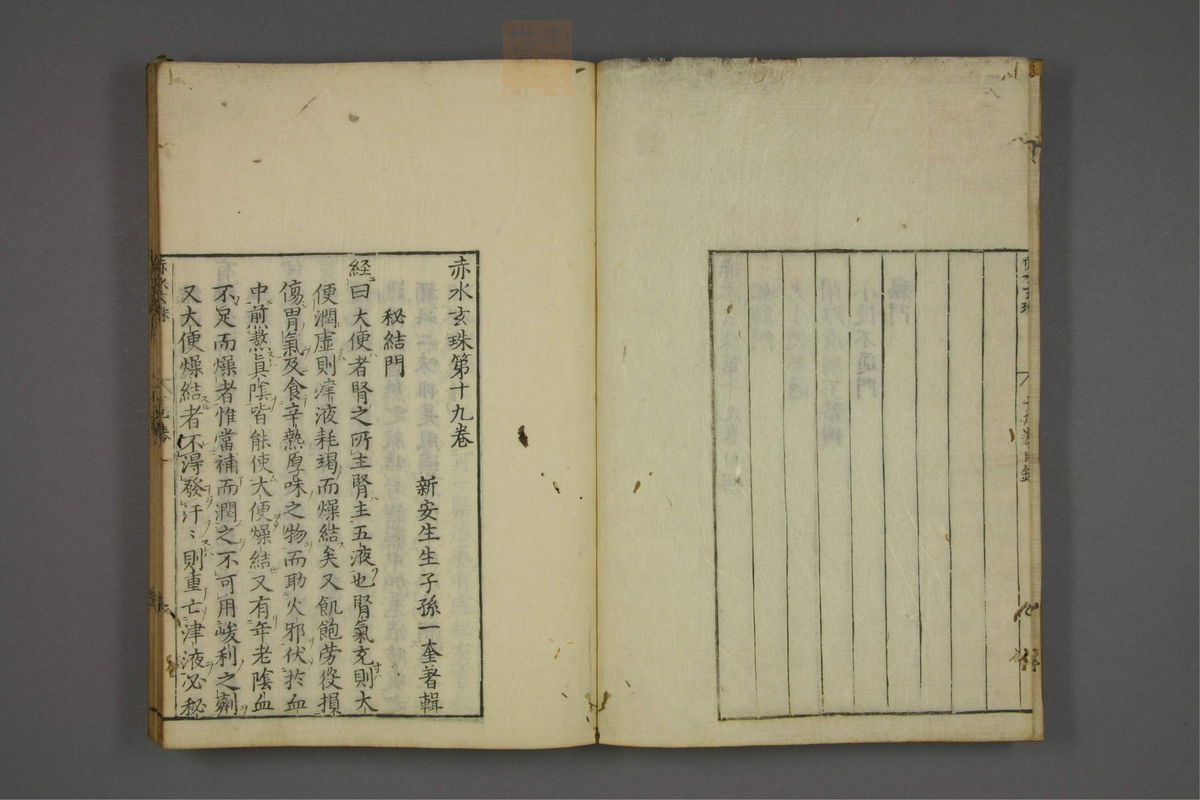 赤水玄珠第十九卷
新安生生子孫一奎著輯
秘結門
経曰大便者腎之所主腎主五液也腎氣充則大
便潤虛則津液耗竭而燥結矣又飢飽勞役損
傷胃氣及食辛熱厚味之物而助火邪伏扵血
中煎熬眞陰皆能使大便燥結又有年老陰血
不足而燥者惟當補而潤之不可用峻利之劑
又大便燥結者不淂發汗〻則重亡津液必秘